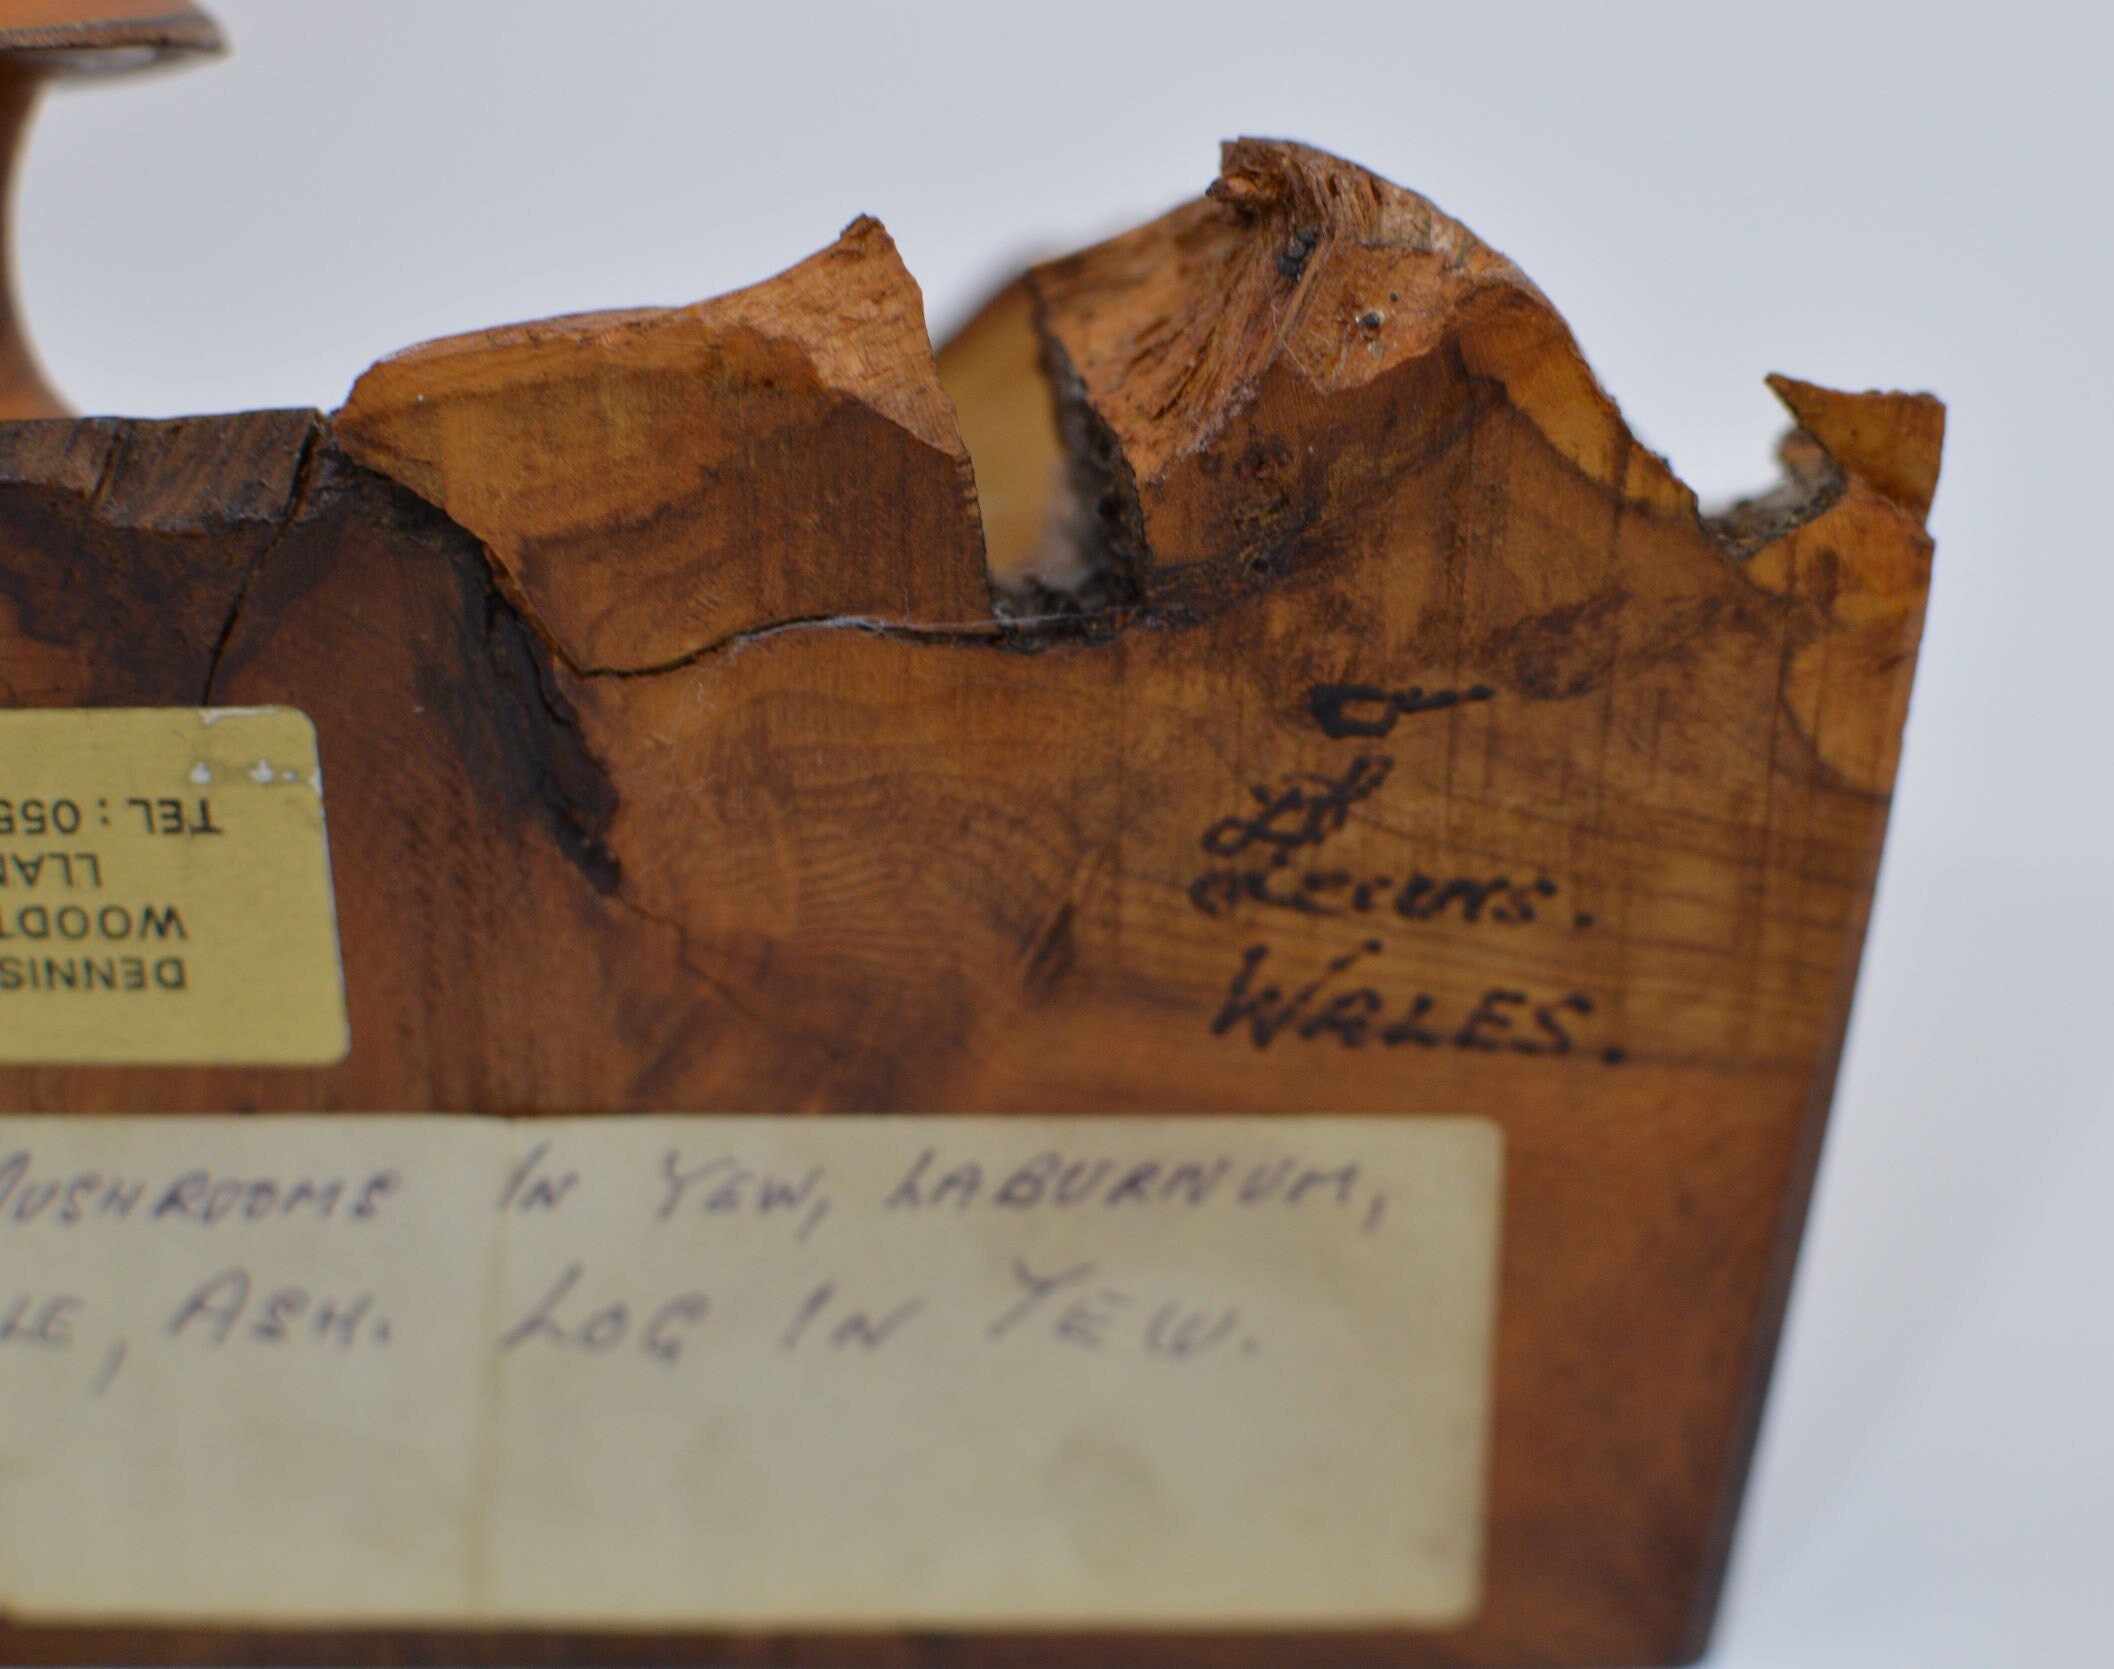 Lewis.
WALES.
DENNIS
WOODT
LLAN
TEL: 055
MUSHROOMS IN YEW, LABURNUM,
LE, ASH. LOG IN YEW.